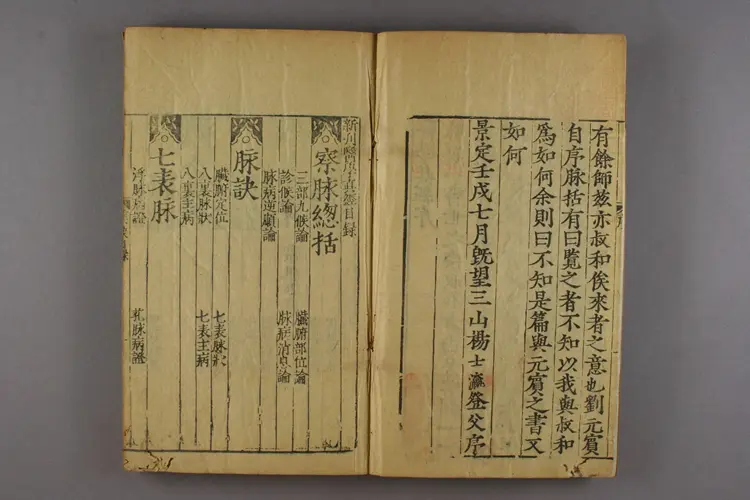 有餘師茲亦叔和俟來者之意也劉元賓
自序脉括有曰覽之者不知以我與叔和
爲如何余則曰不知是篇與元賓之書又
如何
景定壬戌七月旣望三山楊士瀛登父序
新刊醫學眞經目録
察脉總括
三部九候論 臟腑部位論
診候論 脉病消息論
脉病逆順論
脉訣
臟腑定位 七表脉狀
八裏脉狀 七表主病
八裏主病
七表脉
浮脉病證 芤脉病證